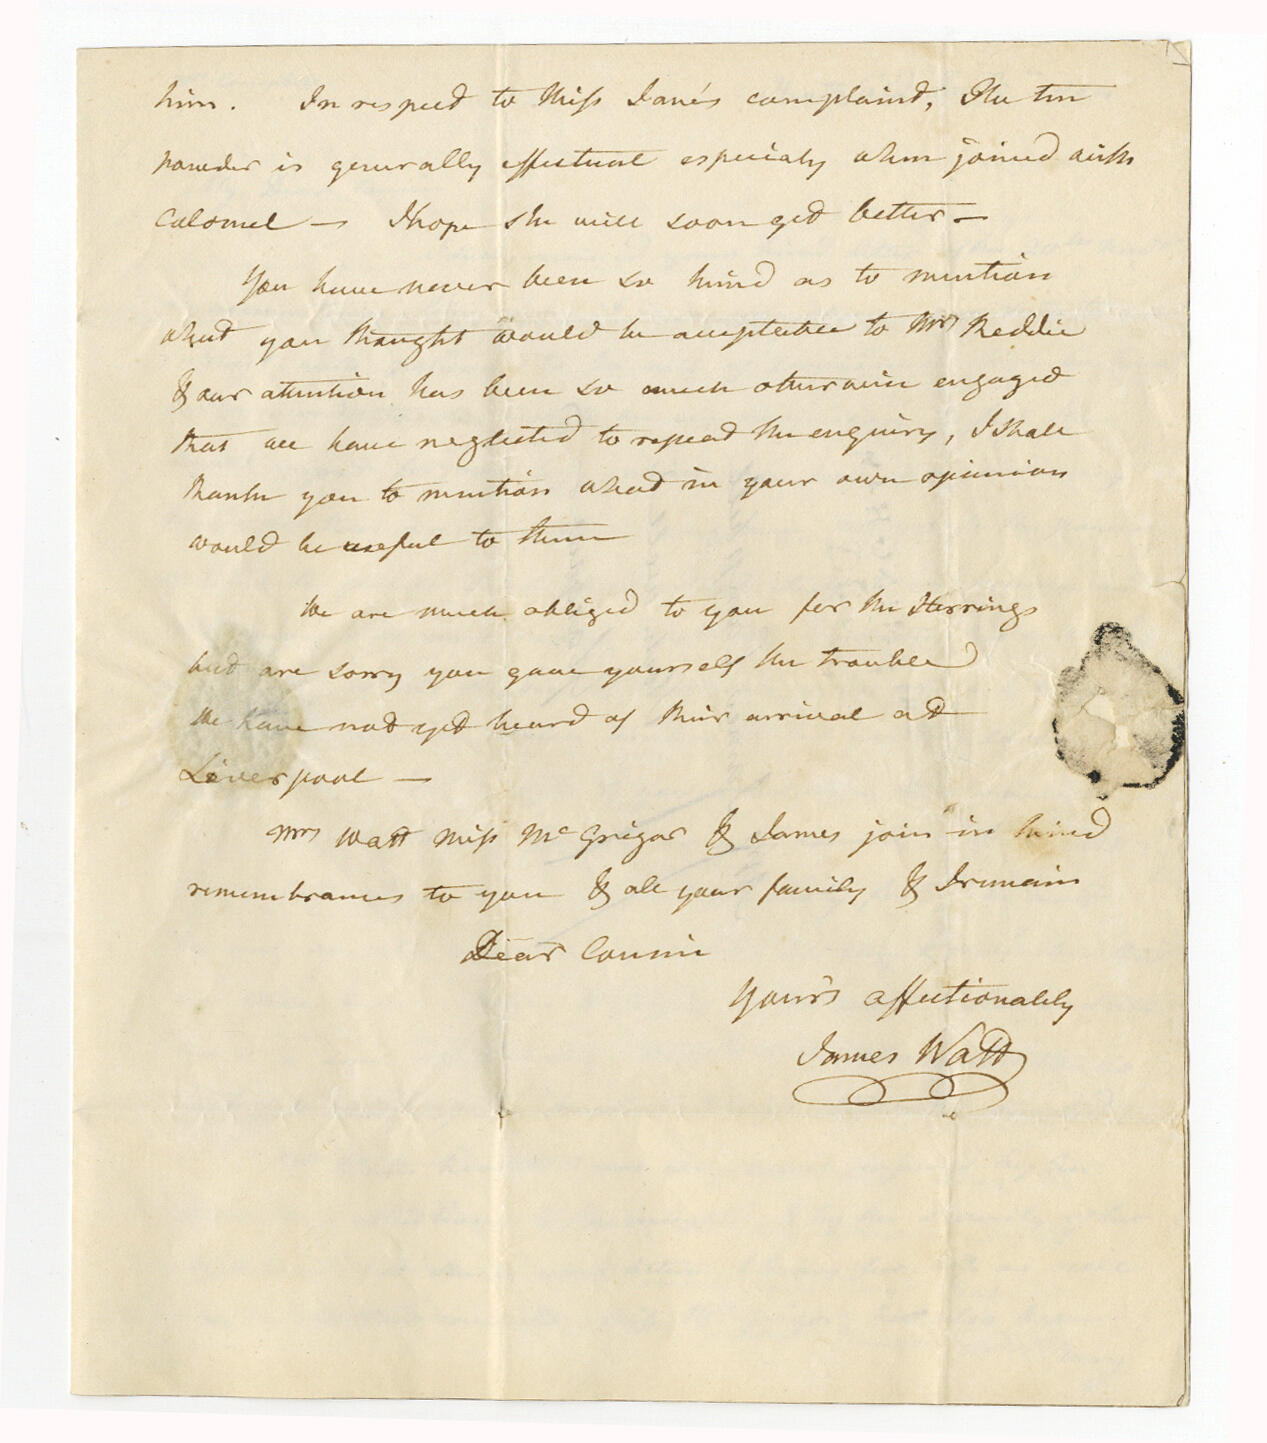 him. In respect to Miss Jane's complaint, The tin
powder is generally effectual especialy when joined with
Calomel — I hope she will soon get better —
You have never been so kind as to mention
what you thought would be acceptable to Mrs Reddie
& our attention has been so much otherwise engaged
that we have neglected to repeat the enquiry, I shall
thank you to mention what in your own opinion
would be useful to them
We are much obliged to you for the Herrings
but are sorry you gave yourself the trouble
We have not yet heard of their arrival at
Liverpool —
Mrs Watt Miss McGrigor & James join in kind
remembrances to you & all your family & I remain
Dear Cousin
Your's affectionately
James Watt